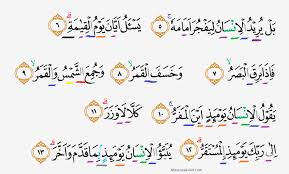 بَلْ يُرِيْدُ الْاِنْسَانُ لِيَفْجُرَ اَمَامَهٗۚ ٥ يَسْـَٔلُ اَيَّانَ يَوْمُ الْقِيٰمَةِۗ ٦
فَاِذَا بَرِقَ الْبَصَرُۙ ٧ وَخَسَفَ الْقَمَرُۙ ٨ وَجُمِعَ الشَّمْسُ وَالْقَمَرُۙ ٩
يَقُوْلُ الْاِنْسَانُ يَوْمَىِٕذٍ اَيْنَ الْمَفَرُّۚ ١٠ كَلَّا لَا وَزَرَۗ ١١
اِلٰى رَبِّكَ يَوْمَىِٕذِ ِۨالْمُسْتَقَرُّۗ ١٢ يُنَبَّؤُا الْاِنْسَانُ يَوْمَىِٕذٍۢ بِمَا قَدَّمَ وَاَخَّرَۗ ١٣